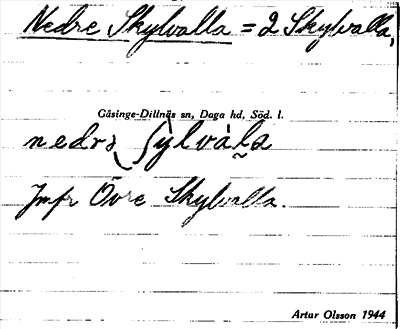 Nedre Skylvalla = 2 Skylvalla,
Gåsinge-Dillnäs sn, Daga hd, Söd. l.
nedrə ʃỳlvàl̰a
Jmfr Övre Skylvalla.
Artur Olsson 1944